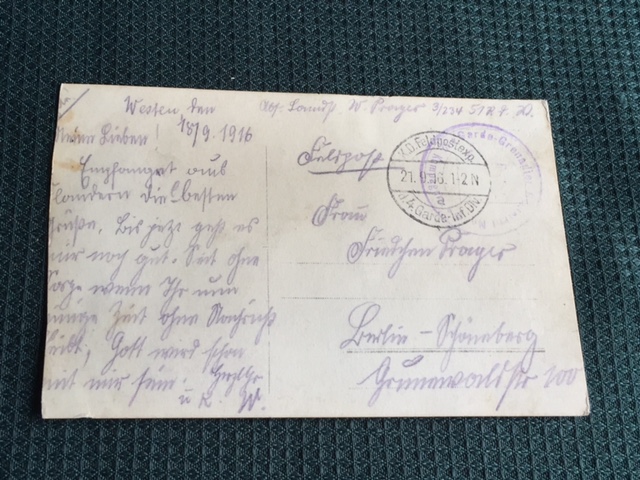 Westen, den
18/9. 1916
Meine Lieben!
Empfanget aus
Flandern die besten
Grüße. Bis jetzt geht es
mir noch gut. Seit ohne
Sorge wenn Ihr nun
einige Zeit ohne Nachricht
bleibt, Gott wird schon
mit mir sein. Herzl. Gr.
u. K. W.
Abs: Landst. W. Prager 3/234
Feldpost
K.D. Feldpostexp.
21.9.16. 1-2 N
a
d. 4. Garde-Inf. Div.
Garde-Grenadier
Frau
Friedchen Prager
Berlin-Schöneberg
Grunewaldstr 100